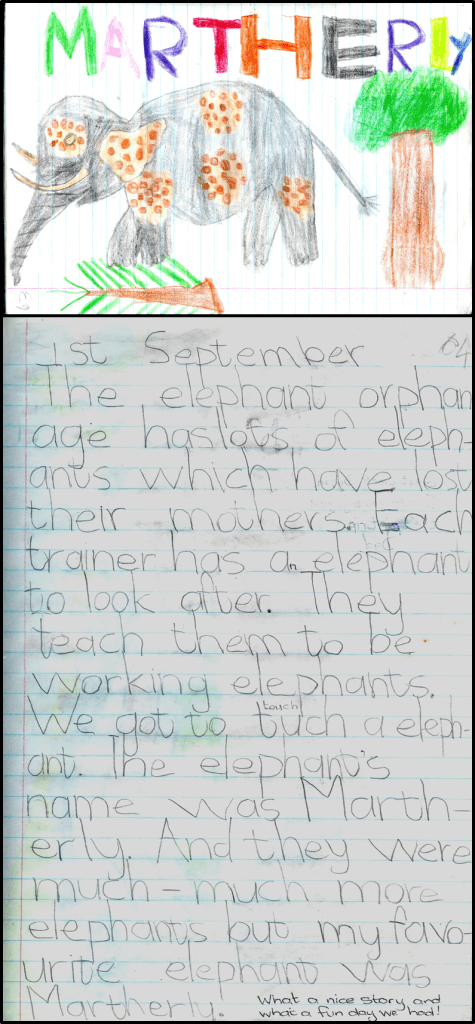 MARTHERLY
63
1st September
64
The elephant orphan
age has lots of eleph-
ants which have lost
their mothers. Each
trainer has an elephant
to look after. They
teach them to be
working elephants.
touch
We got to tuch a eleph-
ant. The elephant's
name was Marth-
erly. And they were
much-much more
elephants but my favo-
urite elephant was
Martherly.
What a nice story and
what a fun day we had!